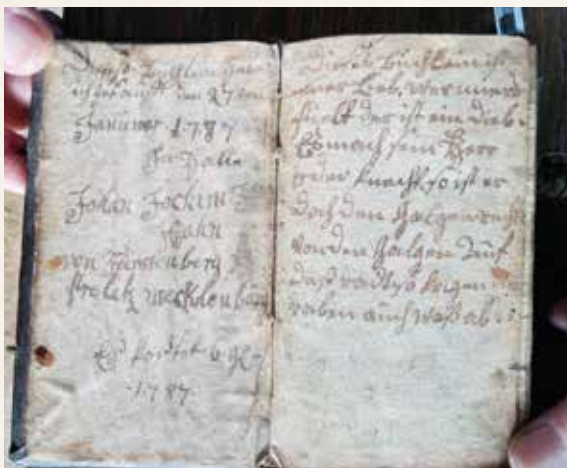 Dieses Büchlein habe
ich gekauft den 27 ten
Januwar 1787
In Halle
Johan Jochim
Hahn
von Fürstenberg
strelitz mecklenburg
Es kostet 6 gl
1787
Dieses büchlein ist
mir Lieb, wer mirs
stielt der ist ein dieb.
Es mach sein Herr
oder knecht so ist er
doch den Galgen recht
von den Galgen Auf
das rad
raben auch was ab